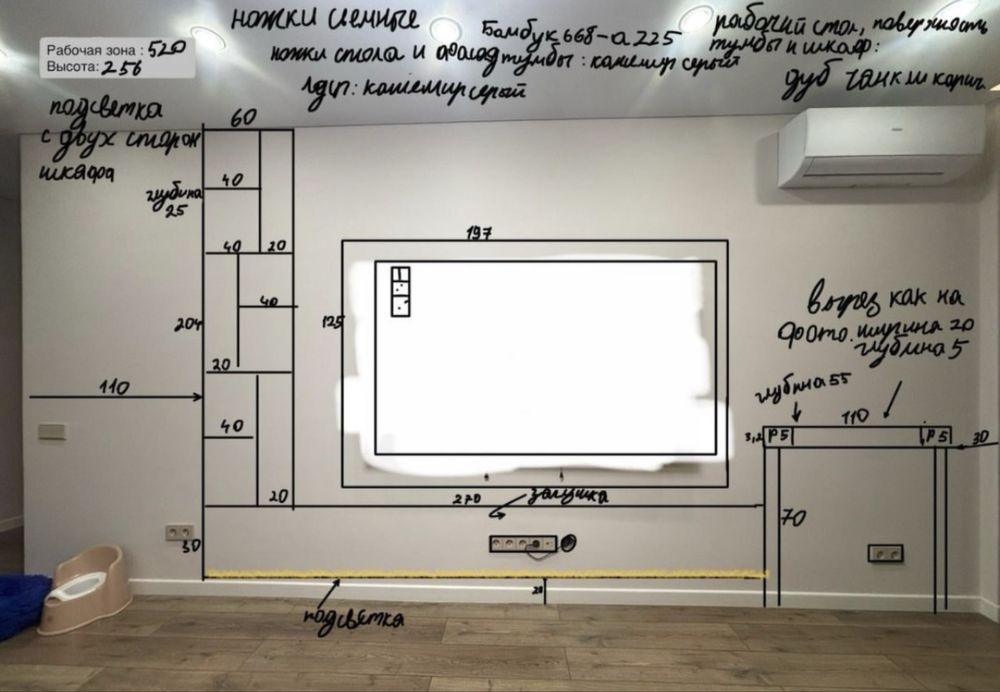 ножки съемные
Рабочая зона : 520
Высота: 256
Бамбук 668-а 225
рабочий стол, поверхность
тумбы и шкаф:
дуб чанкш корич.
ножки стола и фасад тумбы : кашемир серый
лдсп: кашемир серый
подсветка
с двух сторон
шкафа
60
40
глубина
25
40
20
197
40
204
125
вырез как на
фото. ширина 20
глубина 5
20
110
глубина 55
110
40
3,2
P 5
P 5
30
20
270
заглушка
70
30
20
подсветка